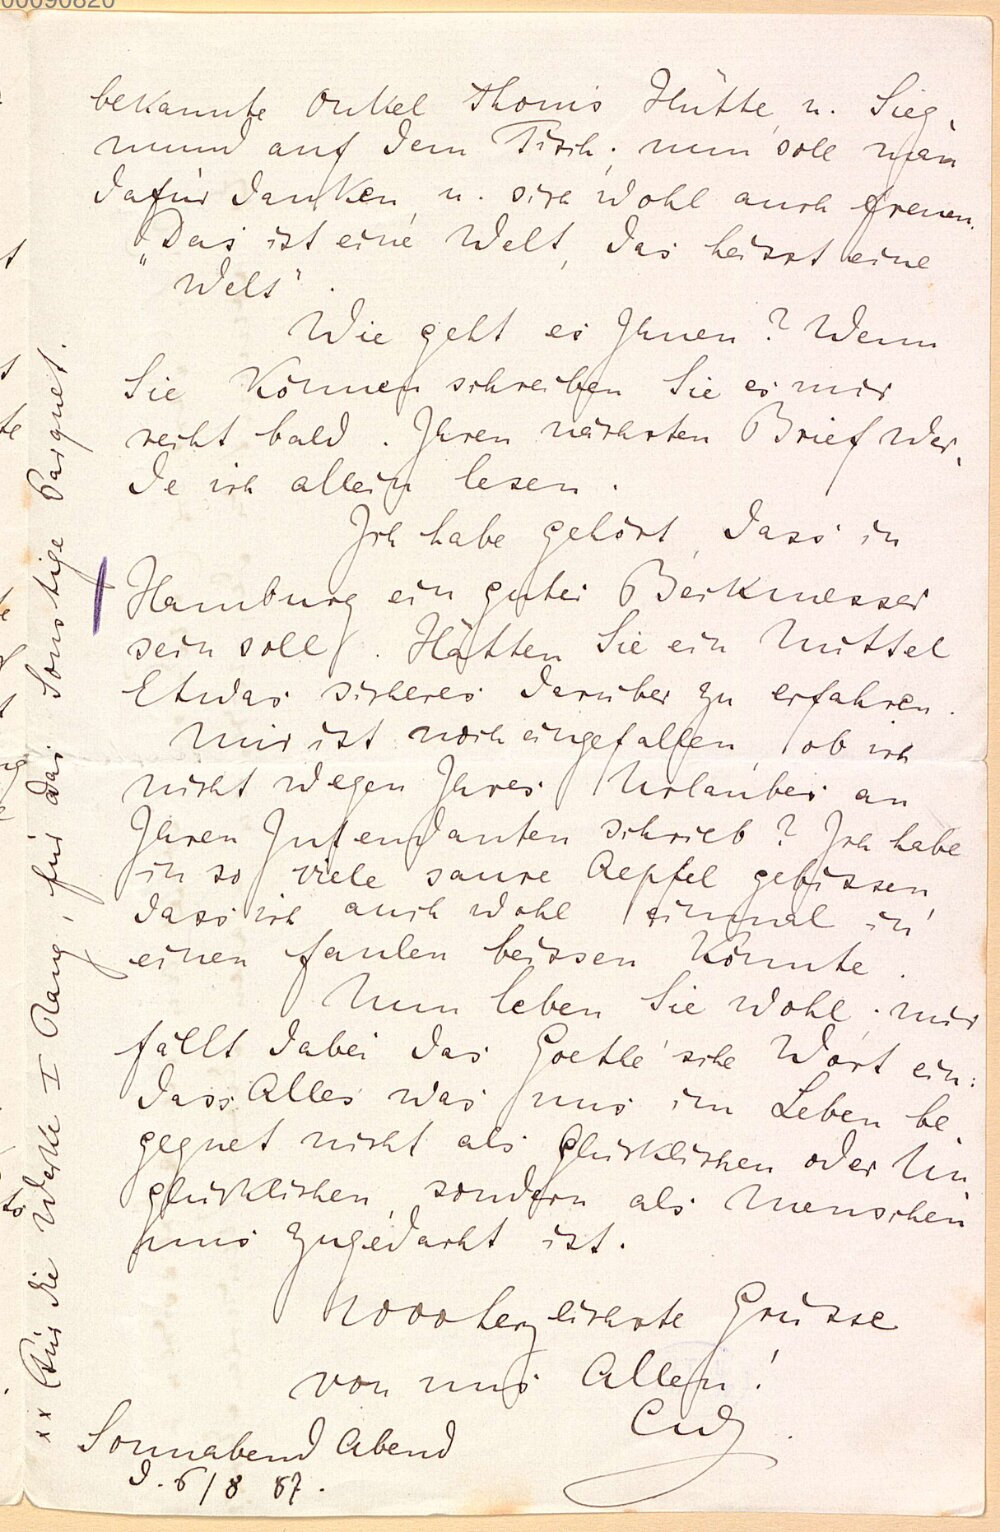 00090820
bekannte Onkel Thoms Hütte, u. Sieg-
mund auf dem Tisch; nun soll man
dafür danken, u. sich wohl auch freuen.
"Das ist eine Welt, das heisst eine
Welt".
Wie geht es Ihnen? Wenn
Sie können schreiben Sie es mir
recht bald. Ihren nächsten Brief wer-
de ich allein lesen.
Ich habe gehört, dass in
Hamburg ein guter Beckmesser
sein soll. Hätten Sie ein Mittel
Etwas sicheres darüber zu erfahren.
Mir ist noch eingefallen, ob ich
nicht wegen Ihres Urlaubes an
Ihren Intendanten schrieb? Ich habe
in so viele saure Aepfel gebissen,
dass ich auch wohl einmal in
einen faulen beissen könnte.
Nun leben Sie wohl; mir
fällt dabei das Goethe'sche Wort ein:
dass Alles was uns im Leben be-
gegnet nicht als Glücklichen oder Un
glücklichen, sondern als Menschen
uns zugedacht ist.
1000 herzlichste Grüsse
von uns Allen!
CW.
Sonnabend Abend
d. 6/8 87.
xx Für die Werke I Rang, für das Sonstige Parquet.